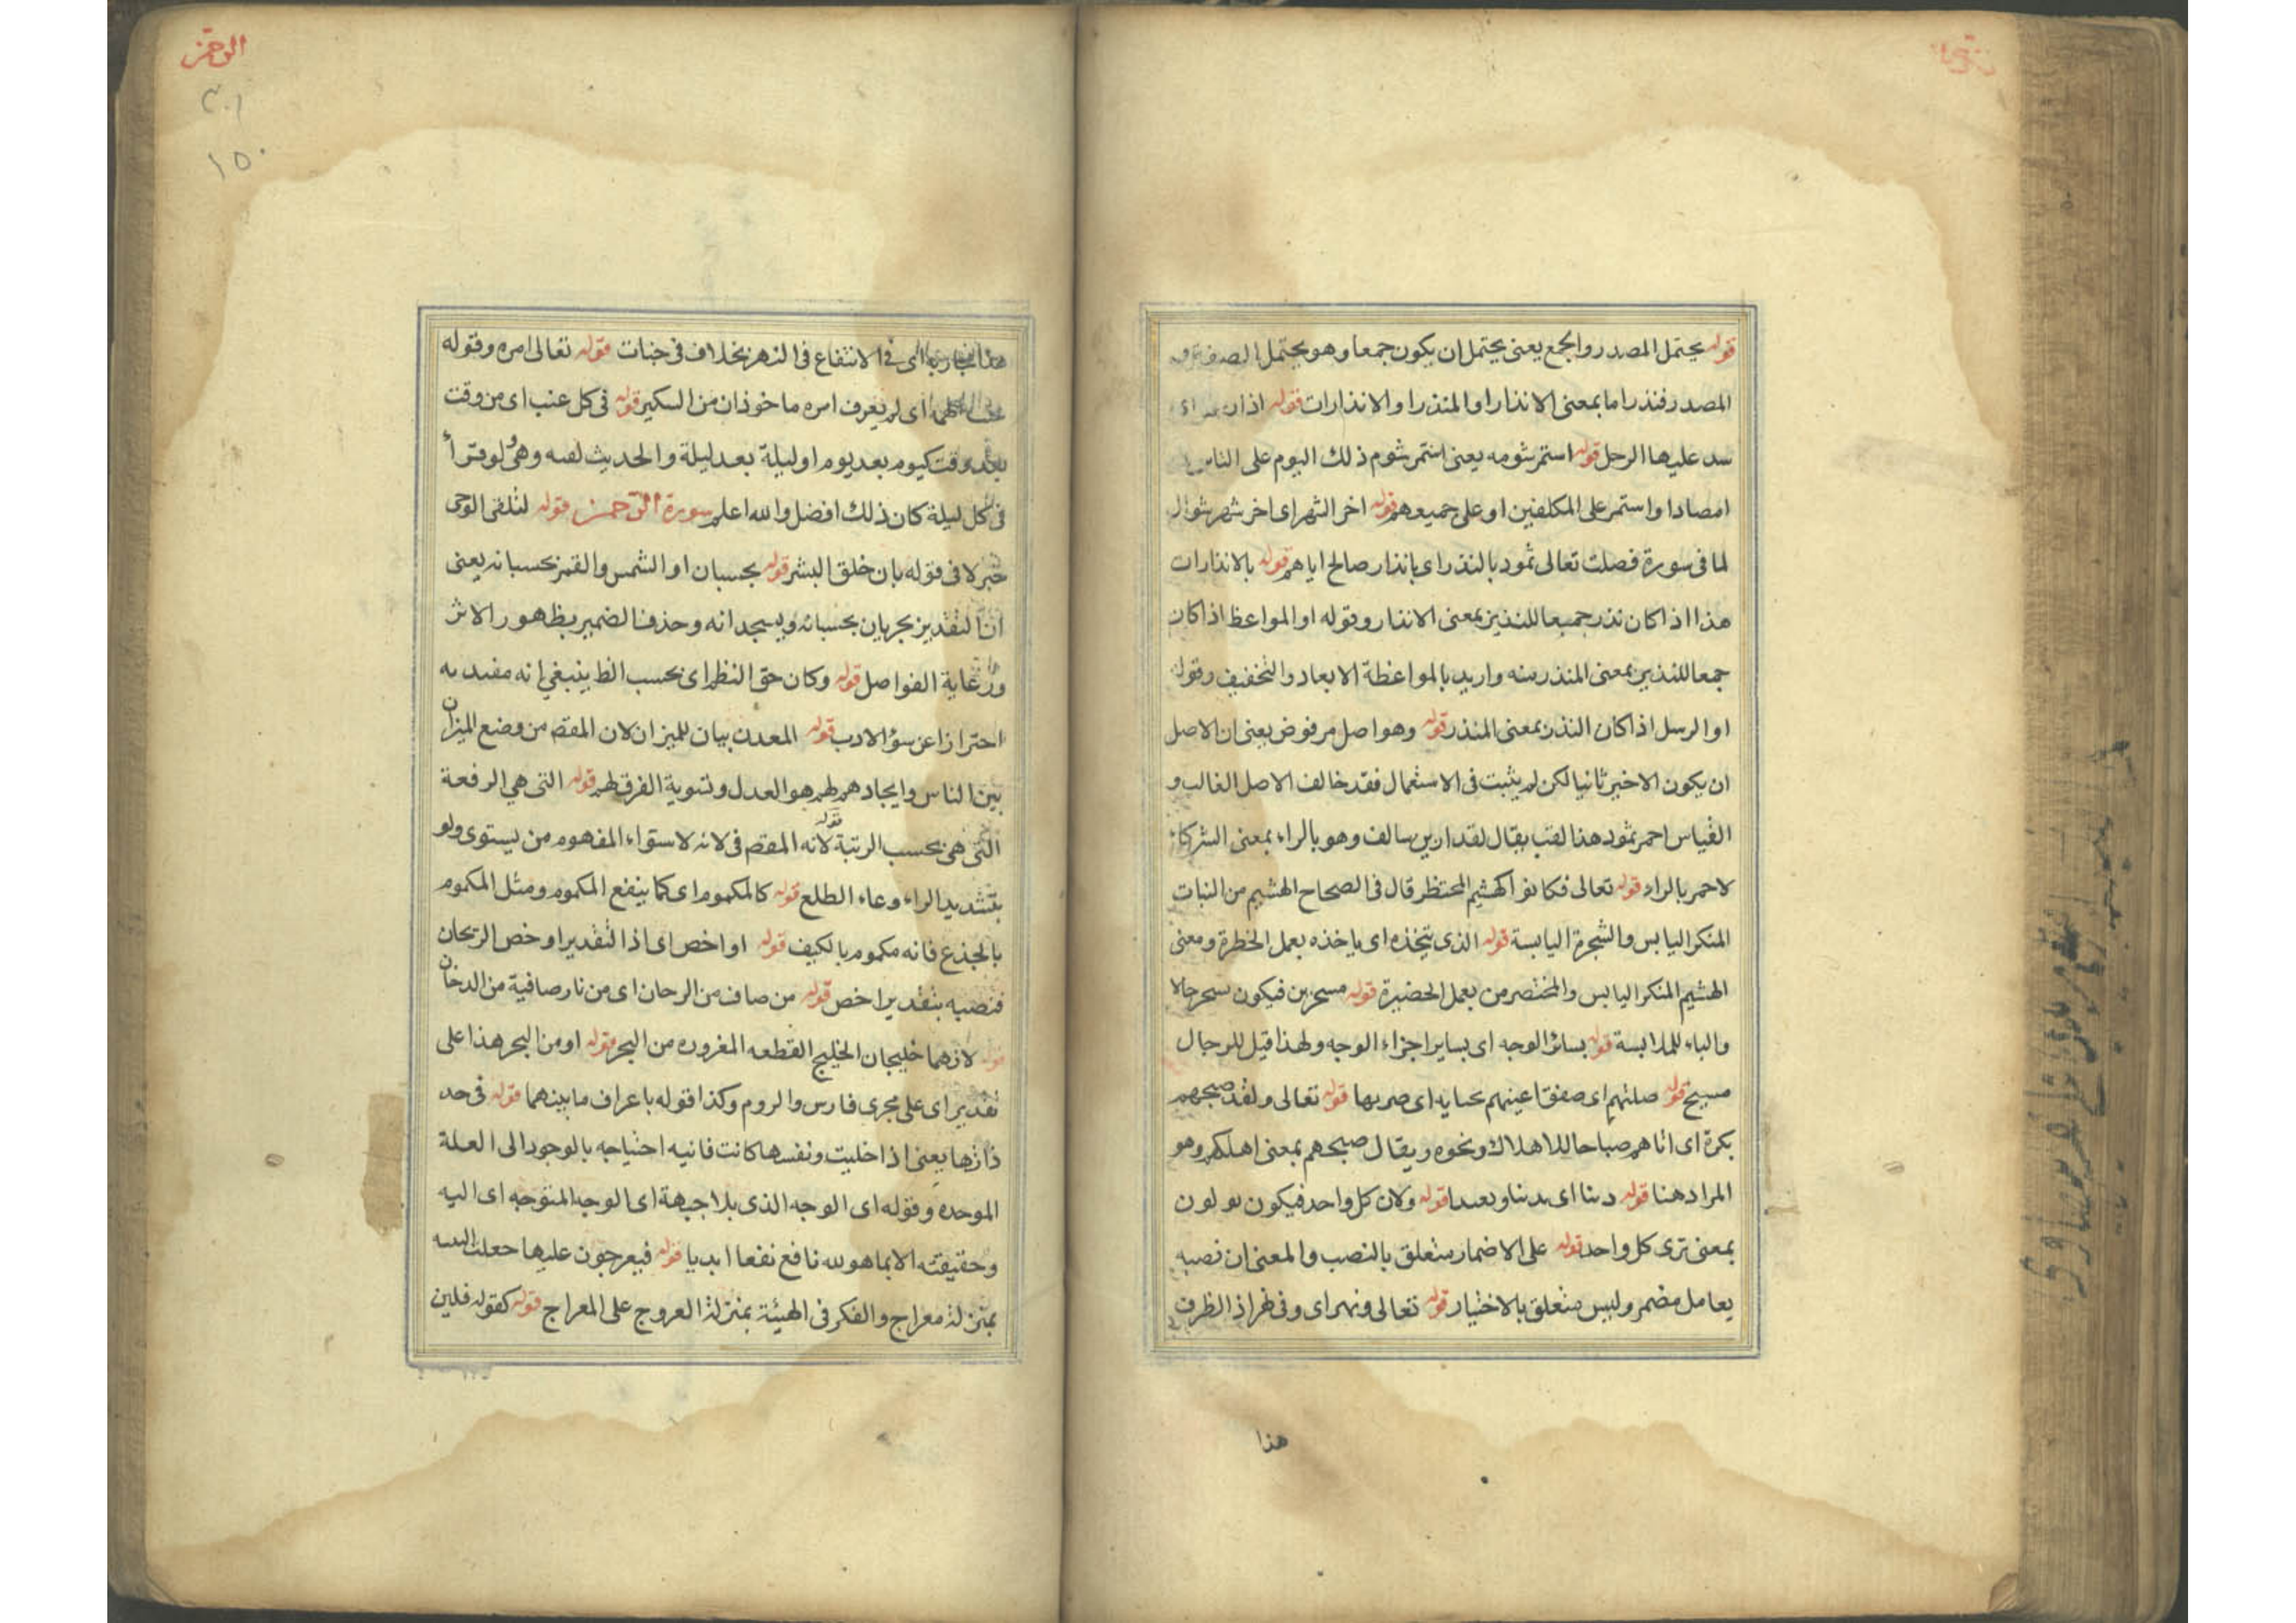 قوله يحتمل المصدر والجمع يعنى يحتمل ان يكون جمعا وهو يحتمل
المصدر فنذر اما بمعنى الانذار او المنذر او الانذارات قوله
سد عليها الرحل قوله استمر شومه يعنى استمر شوم ذلك اليوم على الناس
امصادا واستمر على المكلفين او على جميعهم قوله اخر الشهر اى اخر شهر شوال
لما فى سورة فصلت تعالى ثمود بالنذر اى بانذار صالح اياهم قوله بالانذارات
هذا اذا كان نذر جميعا للنذير بمعنى الانذار وقوله او المواعظ اذا كان
جمعا للنذير بمعنى المنذر منه واريد بالمواعظة الابعاد والتخفيف وقوله
او الرسل اذا كان النذر بمعنى المنذر قوله وهو اصل مرفوض يعنى ان الاصل
ان يكون الاخير ثانيا لكن لم يثبت فى الاستعمال فقد خالف الاصل الغالب و
القياس احمر ثمود هذا لقب يقال لقدار بن سالف وهو بالراء بمعنى
لاحمر بالراء قوله تعالى فكانوا كهشيم المحتظر قال فى الصحاح الهشيم من النبات
المنكر اليابس والشجرة اليابسة قوله الذى يتخذه اى ياخذه يعمل الخطرة ومعنى
الهشيم المنكر اليابس والمختصر من يعمل الحضيرة قوله مسحرين فيكون بسحر حالا
والباء للملابسة قوله بسائر الوجه اى بساير اجزاء الوجه ولهذا قيل للرجال
مسيح قوله صلتهم اى صفق اعينهم قوله تعالى ولقد صبحهم
بكرة اى اتاهم صباحا للاهلاك ونحوه ويقال صبحهم بمعنى اهلكهم وهو
المراد هنا قوله قوله ولان كل واحد فيكون
بمعنى ترى كل واحد قوله على الاضمار متعلق بالنصب والمعنى ان نصبه
بعامل مضمر وليس متعلق بالاختيار قوله تعالى ونهر اى وفى نهر اذ الظرف
هذا
الرحمن
٣٠١
١٥٠
اى فى الانتفاع فى النهر بخلاف فى جنات قوله تعالى امره وقوله
اى لم يعرف امره ماخوذ ان من السكير قوله فى كل عنب اى من وقت
بعد وقت كيوم بعد يوم او ليلة بعد ليلة والحديث وهى لو قرأ
فى كل ليلة كان ذلك افضل والله اعلم سورة الرحمن قوله لتلقى الوحى
خبر لا فى قوله بان خلق البشر قوله بحسبان او الشمس والقمر بحسبانه يعنى
ان التقدير يجريان بحسبانه ويسجدانه وحذف الضمير بظهور الاثر
ورعاية الفواصل قوله وكان حق النظم اى بحسب الظ ينبغى انه
احترازا عن سؤ الادب قوله المعدن بيان للميزان لان المقصم من وضع الميزان
بين الناس وايجادهم لهم هو العدل وتسوية الفرق لهم قوله التى هى الرفعة
التى هى بحسب الرتبة قوله لانه المقصم فى لانه لاستواء المفهوم من يستوى ولو
بتشديد الراء وعاء الطلع قوله كالمكموم اى كما ينفع المكموم ومثل المكموم
بالجذع فانه مكموم بالكيف قوله او اخص اى اذا التقدير او خص الريحان
فنصبه بتقدير اخص قوله من صاف من الرحان اى من نار صافية من الدخان
قوله لانهما خليجان الخليج القطعه المغروره من البحر قوله او من البحر هذا على
تقدير اى على مجرى فارس والروم وكذا قوله باعراف ما بينهما قوله فى حد
ذاتها يعنى اذا خليت ونفسها كانت فانيه احتياجه بالوجود الى العلة
الموحده وقوله اى الوجه الذى بلا جهة اى الوجه المتوجه اى اليه
وحقيقته الا بما هو لله نافع نفعا ابديا قوله فيعرجون عليها جعلت
بمنزلة معراج والفكر فى الهيئة بمنزلة العروج على المعراج قوله كقوله فلين